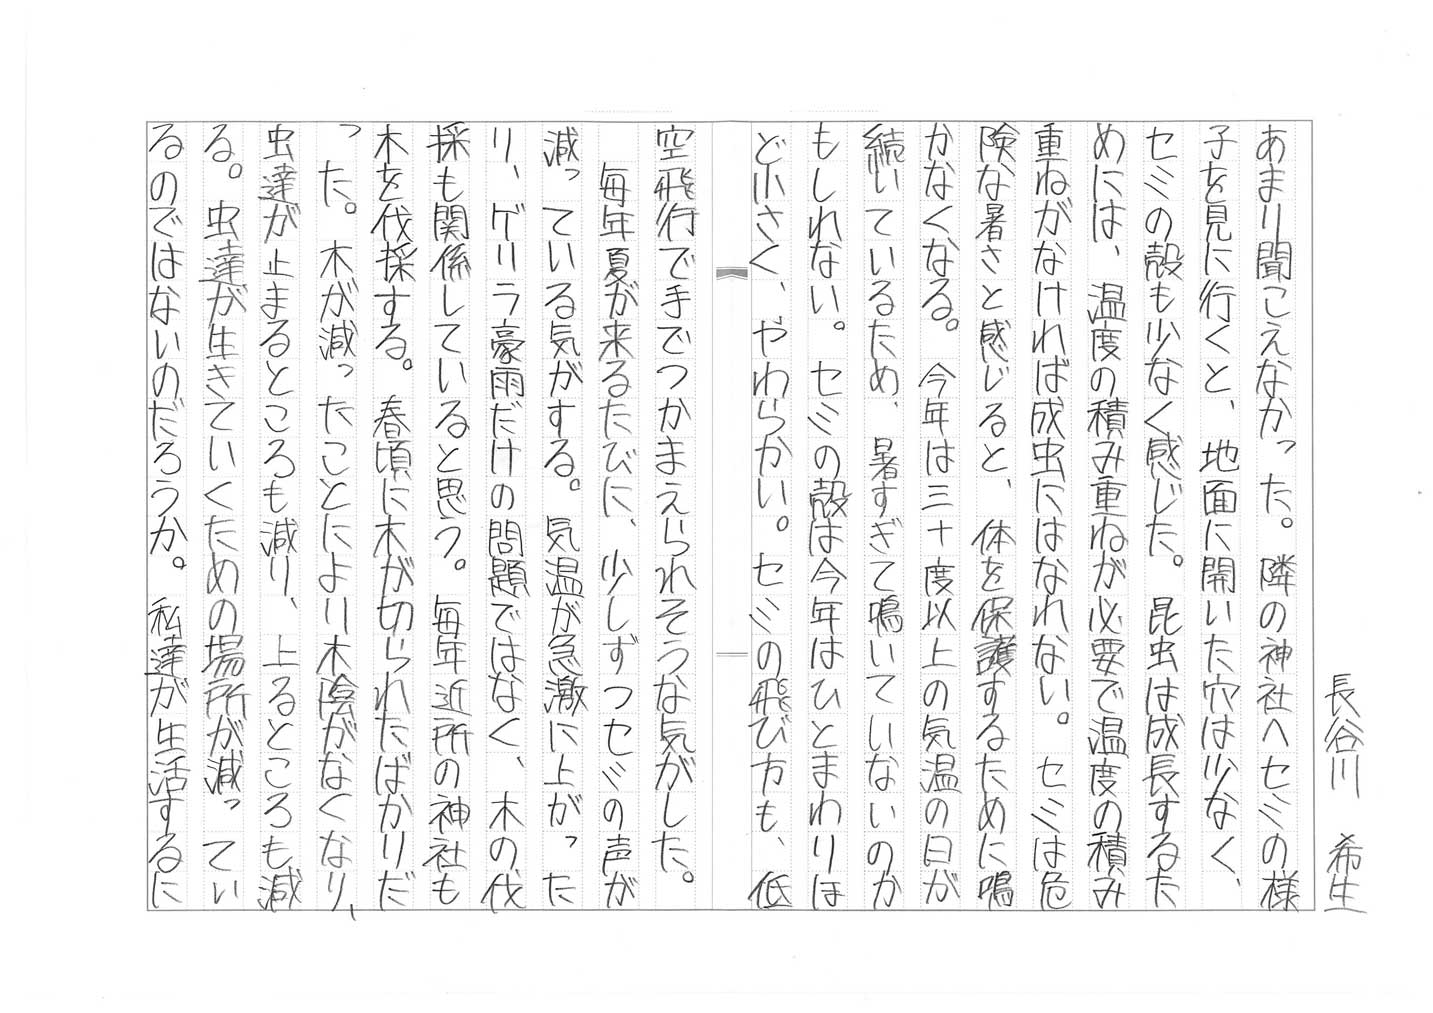 長谷川 希生
あまり聞こえなかった。隣の神社へセミの様
子を見に行くと、地面に開いた穴は少なく、
セミの殻も少なく感じた。昆虫は成長するた
めには、温度の積み重ねが必要で温度の積み
重ねがなければ成虫にはなれない。セミは危
険な暑さと感じると、体を保護するために鳴
かなくなる。今年は三十度以上の気温の日が
続いているため、暑すぎて鳴いていないのか
もしれない。セミの殻は今年はひとまわりほ
ど小さく、やわらかい。セミの飛び方も、低
空飛行で手でつかまえられそうな気がした。
毎年夏が来るたびに、少しずつセミの声が
減っている気がする。気温が急激に上がった
り、ゲリラ豪雨だけの問題ではなく、木の伐
採も関係していると思う。毎年近所の神社も
木を伐採する。春頃に木が切られたばかりだ
った。木が減ったことにより木陰がなくなり、
虫達が止まるところも減り、上るところも減
る。虫達が生きていくための場所が減ってい
るのではないのだろうか。私達が生活するに